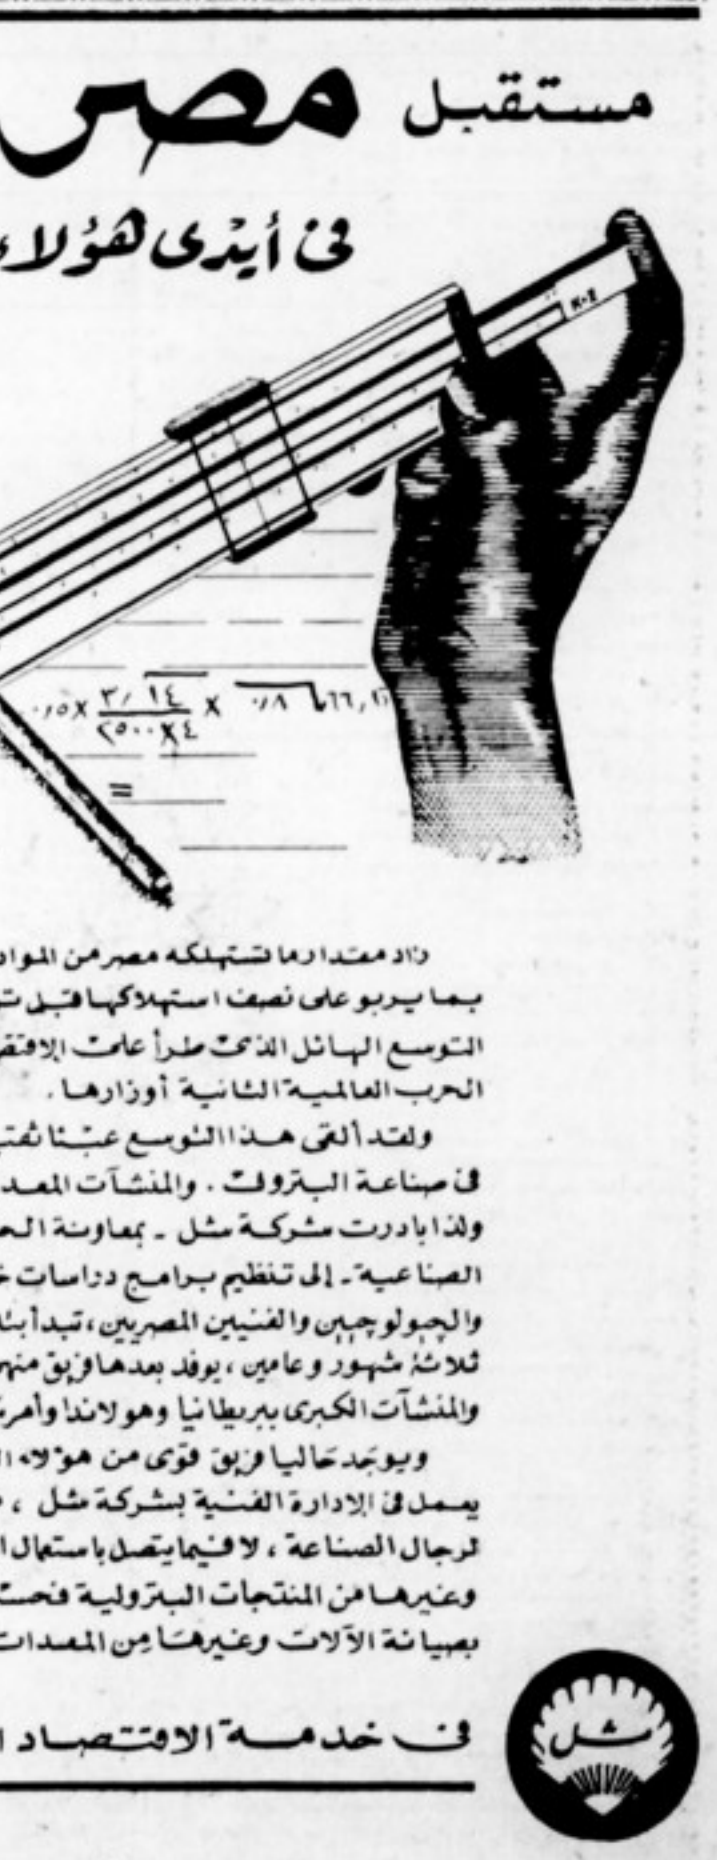 مستقبل مصر
فى أيدى هؤلاء
K-2
زاد مقدار ما تستهلكه مصر من المواد
بما يربو على نصف استهلاكها قبل
التوسع الهائل الذى طرأ على
الحرب العالمية الثانية أوزارها .
ولقد ألقى هذا التوسع عبئا
فى صناعة البترول . والمنشآت
ولذا بادرت شركة شل - بمعاونة
الصناعية - إلى تنظيم برامج دراسات
والجيولوجيين والفنيين المصريين ، تبدأ
ثلاثة شهور وعامين ، يوفد بعدها فريق
والمنشآت الكبرى ببريطانيا وهولاندا
ويوجد حاليا فريق قوى من هؤلاء
يعمل فى الإدارة الفنية بشركة شل ،
لرجال الصناعة ، لا فيما يتصل باستعمال
وغيرها من المنتجات البترولية فحسب
بصيانة الآلات وغيرها من المعدات
فى خدمة الاقتصاد
شل